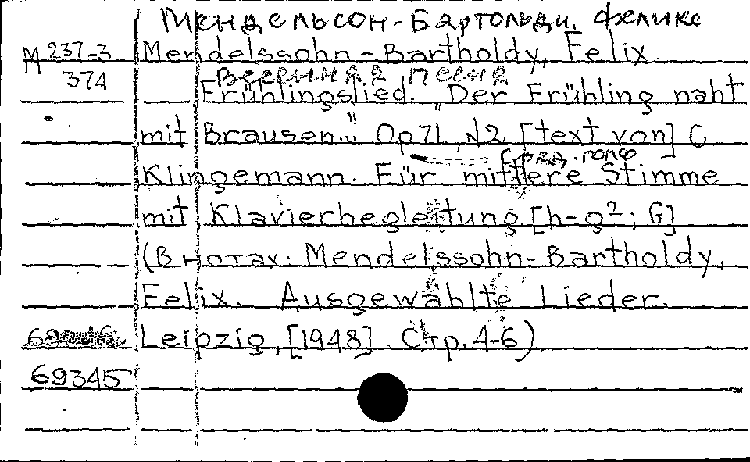 Мендельсон-Бартольди, Феликс
М 237-3 Mendelssohn-Bartholdy, Felix
374 Весенняя песня
Frühlingslied. "Der Frühling naht
mit Brausen." Op 71, №2 [text von] C
Klingemann. Für mittlere Stimme
mit Klavierbegleitung. [h-g²; G]
(В нотах: Mendelssohn-Bartholdy,
Felix. Ausgewählte Lieder.
Leipzig, [1948]. Стр. 4-6)
69345